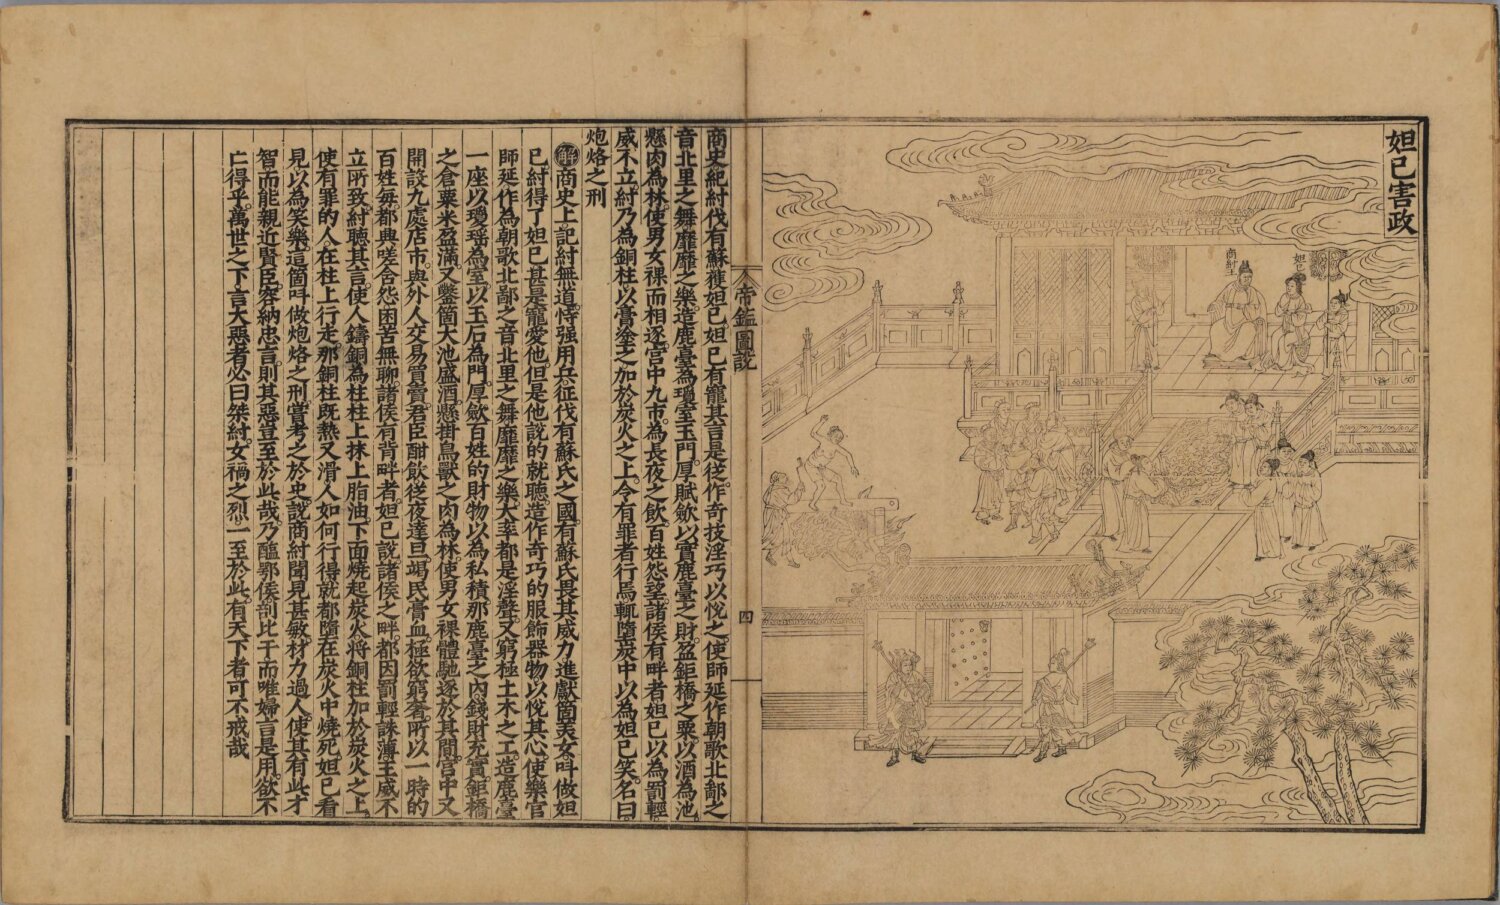 妲己害政
商紂王
妲己
帝鑑圖說
四
商史紀紂伐有蘇獲妲己妲己有寵其言是從作奇技淫巧以悅之使師延作朝歌北鄙之
音北里之舞靡靡之樂造鹿臺為瓊室玉門厚賦斂以實鹿臺之財盈鉅橋之粟以酒為池
懸肉為林使男女裸而相逐宮中九市為長夜之飲百姓怨望諸侯有畔者妲己以為罰輕
威不立紂乃為銅柱以膏塗之加於炭火之上令有罪者行焉輒墮炭中以為妲己笑名曰
炮烙之刑
解商史上記紂無道恃强用兵征伐有蘇氏之國有蘇氏畏其威力進獻箇美女叫做妲
己紂得了妲己甚是寵愛他但是他說的就聽造作奇巧的服飾器物以悅其心使樂官
師延作為朝歌北鄙之音北里之舞靡靡之樂大率都是淫聲又窮極土木之工造鹿臺
一座以瓊瑤為室以玉石為門厚斂百姓的財物以為私積那鹿臺之內錢財充實鉅橋
之倉粟米盈滿又鑿箇大池盛酒懸掛鳥獸之肉為林使男女裸體馳逐於其間宮中又
開設九處店市與外人交易買賣君臣酣飲從夜達旦竭民膏血極欲窮奢所以一時的
百姓每都興嗟含怨困苦無聊諸侯有背畔者妲己說諸侯之畔都因罰輕誅薄主威不
立所致紂聽其言使人鑄銅為柱柱上抹上脂油下面燒起炭火將銅柱加於炭火之上
使有罪的人在柱上行走那銅柱既熱又滑人如何行得就都墮在炭火中燒死妲己看
見以為笑樂這箇叫做炮烙之刑嘗考之於史說商紂聞見甚敏材力過人使其有此才
智而能親近賢臣容納忠言則其惡豈至於此哉乃醢鄂侯剖比干而唯婦言是用欲不
亡得乎萬世之下言大惡者必曰桀紂女禍之烈一至於此有天下者可不戒哉